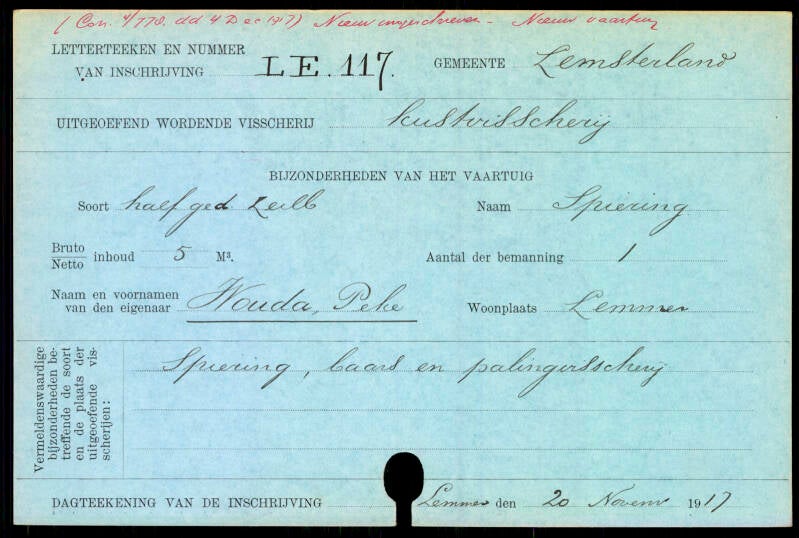 (Con. 4/778. dd 4 Dec 1917) Nieuw ingeschreven - Nieuw vaartuig
LETTERTEEKEN EN NUMMER
VAN INSCHRIJVING LE. 117. GEMEENTE Lemsterland
UITGEOEFEND WORDENDE VISSCHERIJ kustvisscherij
BIJZONDERHEDEN VAN HET VAARTUIG
Soort half ged. zeilb Naam Spiering
Bruto
Netto inhoud 5 M³. Aantal der bemanning 1
Naam en voornamen
van den eigenaar Wouda, Peke Woonplaats Lemmer
Vermeldenswaardige
bijzonderheden be-
treffende de soort
en de plaats der
uitgeoefende vis-
scherijen:
Spiering, baars en palingvisscherij
DAGTEEKENING VAN DE INSCHRIJVING Lemmer den 20 Novemr 1917